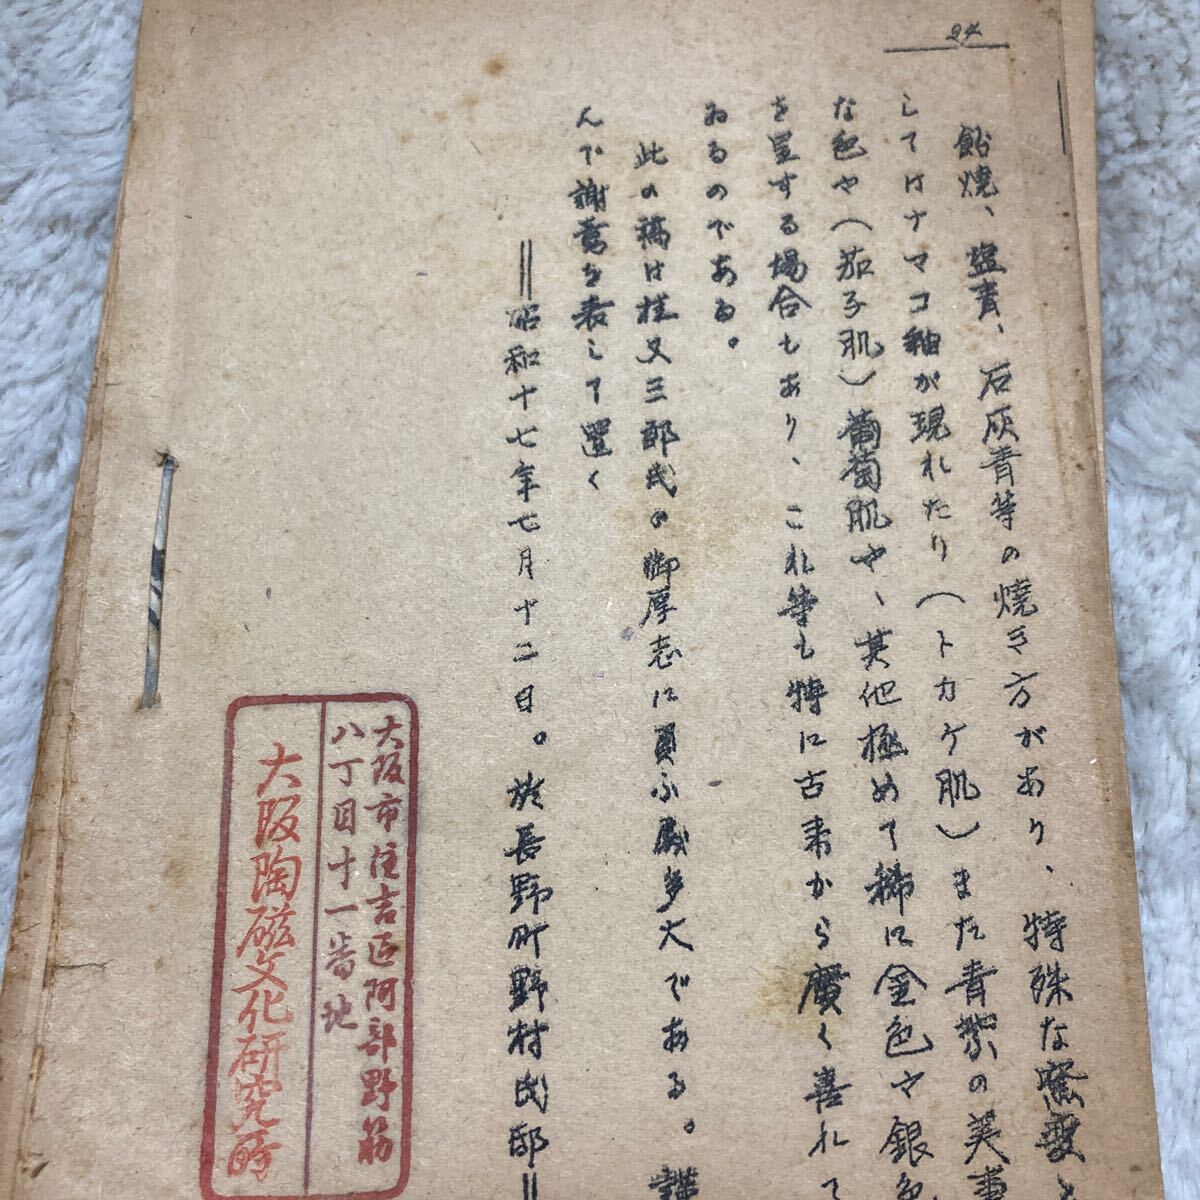 24
飴燒、塩青、石灰青等の燒き方があり、特殊な窯変と
してはナマコ釉が現れたり(トカゲ肌)また青紫の美事
な色や(茄子肌)葡萄肌や、其他極めて稀に金色や銀色
を呈する場合もあり、これ等も特に古来から廣く喜れて
ゐるのである。
此の稿は桂又三郎氏の御厚志に負ふ處多大である。謹
んで謝意を表して置く
=昭和十七年七月十二日。於長野町野村氏邸=
大阪市住吉区阿部野筋
八丁目十一番地
大阪陶磁文化研究所